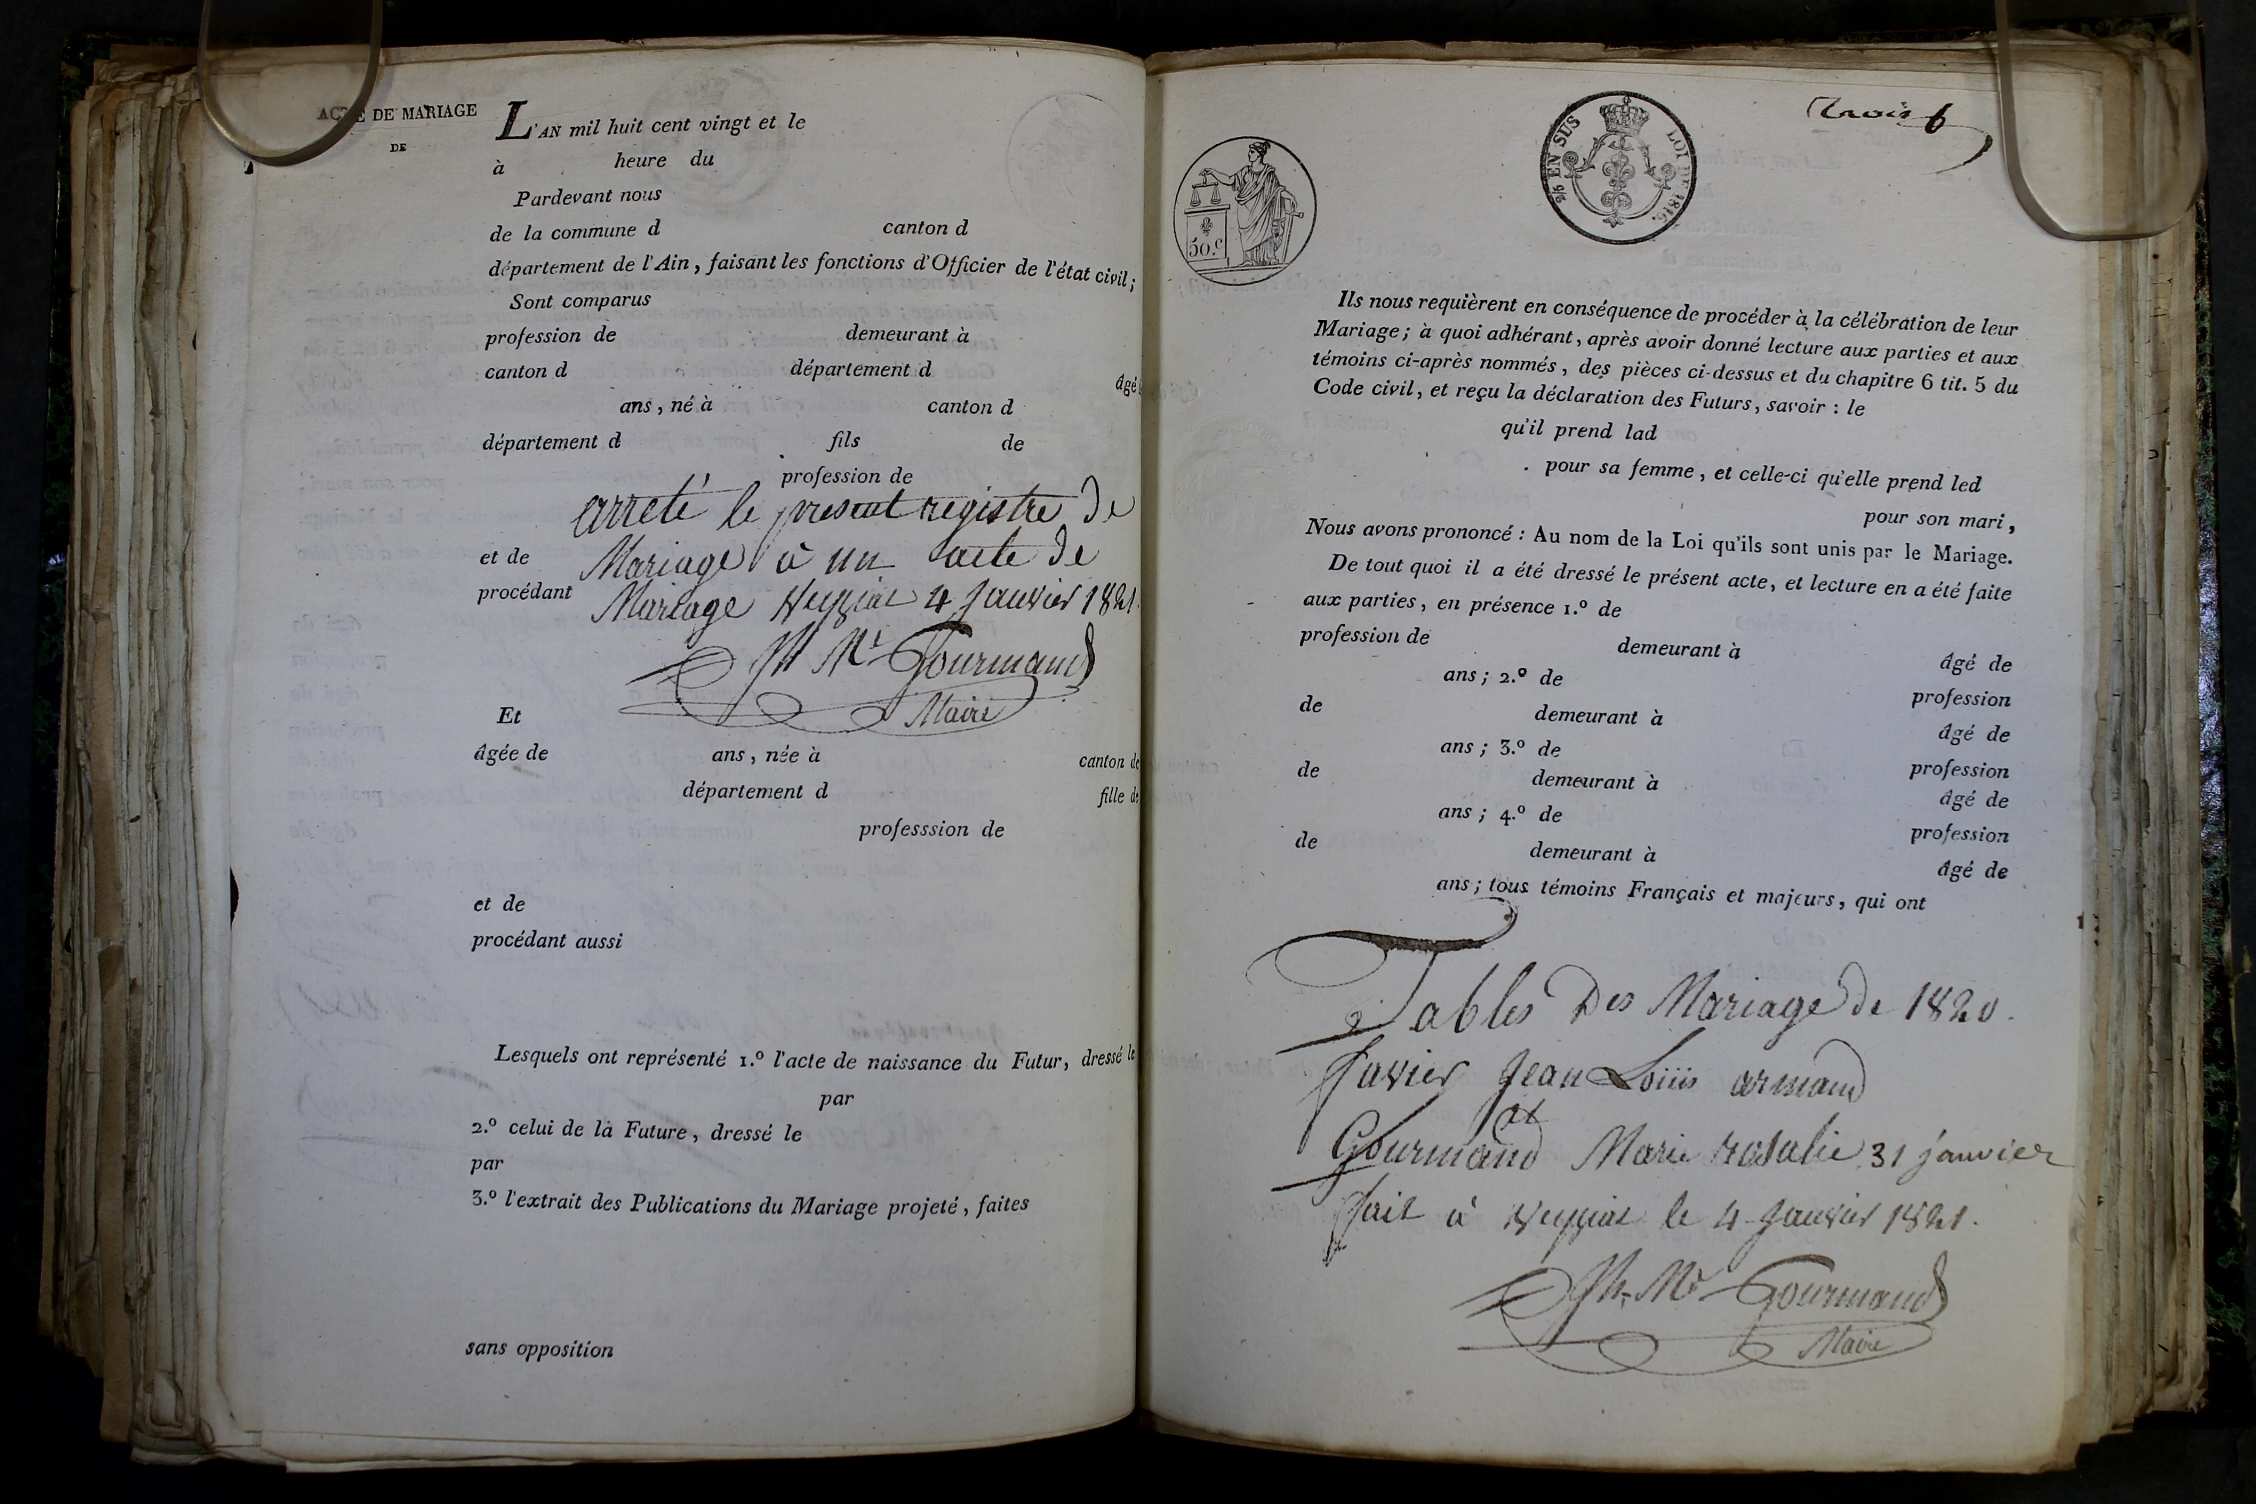 ACTE DE MARIAGE
DE
L'AN mil huit cent vingt et le
à heure du
Pardevant nous
de la commune d canton d
département de l'Ain, faisant les fonctions d'Officier de l'état civil;
Sont comparus
profession de demeurant à
canton d département d âgé
ans, né à canton d
département d fils de
profession de
arreté le present registre de
et de Mariage à un acte de
procédant Mariage Neyziat 4 Janvier 1821.
Gourmand
Maire
Et
âgée de ans, née à canton de
département d fille de
professsion de
et de
procédant aussi
Lesquels ont représenté 1.º l'acte de naissance du Futur, dressé le
par
2.º celui de la Future, dressé le
par
3.º l'extrait des Publications du Mariage projeté, faites
sans opposition
trois
2/5 EN SUS LOI DE 1816.
50.c
Ils nous requièrent en conséquence de procéder à la célébration de leur
Mariage; à quoi adhérant, après avoir donné lecture aux parties et aux
témoins ci-après nommés, des pièces ci-dessus et du chapitre 6 tit. 5 du
Code civil, et reçu la déclaration des Futurs, savoir : le
qu'il prend lad
pour sa femme, et celle-ci qu'elle prend led
pour son mari,
Nous avons prononcé : Au nom de la Loi qu'ils sont unis par le Mariage.
De tout quoi il a été dressé le présent acte, et lecture en a été faite
aux parties, en présence 1.º de
profession de demeurant à âgé de
ans; 2.º de profession
de demeurant à âgé de
ans; 3.º de profession
de demeurant à âgé de
ans; 4.º de profession
de demeurant à âgé de
ans; tous témoins Français et majeurs, qui ont
Tables Des Mariage de 1820.
Javier Jean Louis armand
et
Gourmand Marie rosalie 31 janvier
fait à Neyziat le 4 Janvier 1821.
Gourmand
Maire